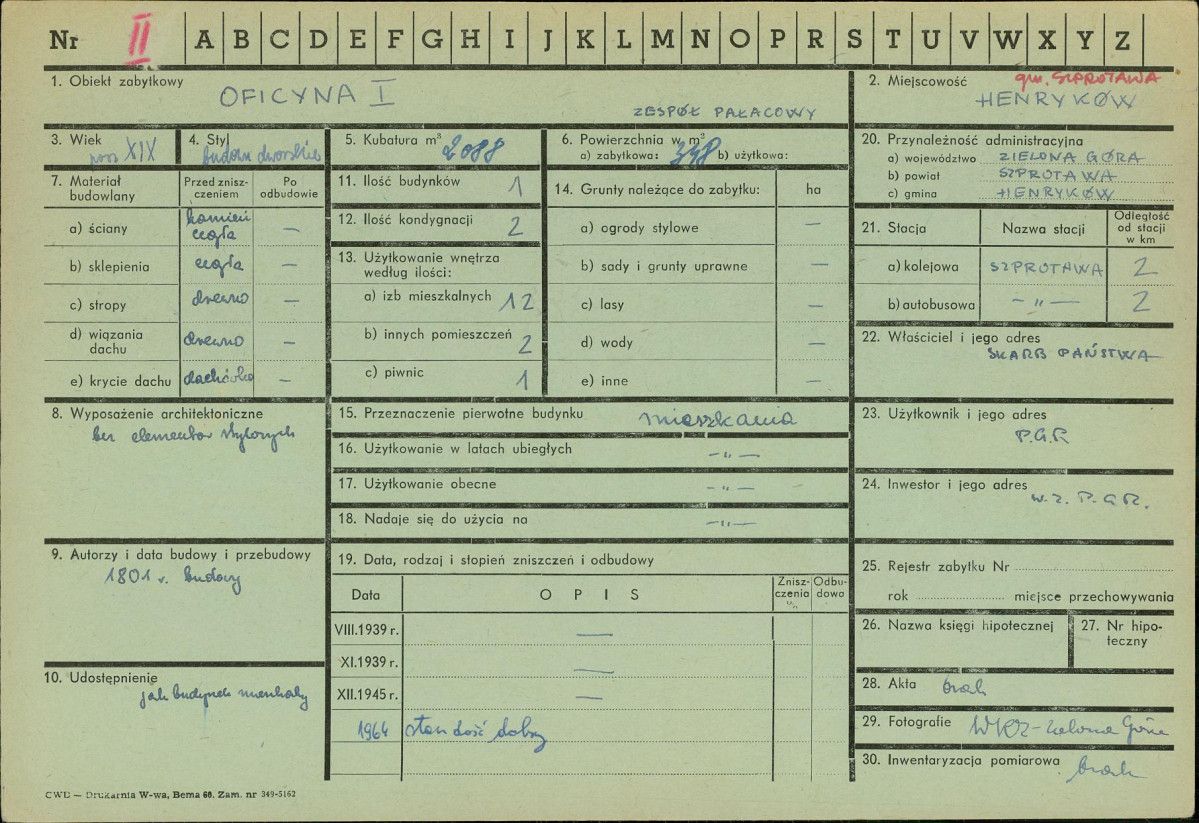 Nr II A B C D E F G H I J K L M N O P R S T U V W X Y Z
1. Obiekt zabytkowy
OFICYNA I
ZESPÓŁ PAŁACOWY
2. Miejscowość gm. SZPROTAWA
HENRYKÓW
3. Wiek
pocz XIX
4. Styl
budown. dworskie
5. Kubatura m³ 2088
6. Powierzchnia w m²
a) zabytkowa: 348 b) użytkowa:
20. Przynależność administracyjna
a) województwo ZIELONA GÓRA
b) powiat SZPROTAWA
c) gmina HENRYKÓW
7. Materiał budowlany
Przed zniszczeniem
Po odbudowie
a) ściany kamień cegła —
b) sklepienia cegła —
c) stropy drewno —
d) wiązania dachu drewno —
e) krycie dachu dachówka —
11. Ilość budynków 1
12. Ilość kondygnacji 2
13. Użytkowanie wnętrza
według ilości:
a) izb mieszkalnych 12
b) innych pomieszczeń 2
c) piwnic 1
14. Grunty należące do zabytku: ha
a) ogrody stylowe —
b) sady i grunty uprawne —
c) lasy —
d) wody —
e) inne —
21. Stacja Nazwa stacji Odległość od stacji w km
a) kolejowa SZPROTAWA 2
b) autobusowa — „ — 2
22. Właściciel i jego adres
SKARB PAŃSTWA
8. Wyposażenie architektoniczne
bez elementów stylowych
15. Przeznaczenie pierwotne budynku mieszkania
16. Użytkowanie w latach ubiegłych — „ —
17. Użytkowanie obecne — „ —
18. Nadaje się do użycia na — „ —
23. Użytkownik i jego adres
P.G.R
24. Inwestor i jego adres
W.Z. P.G.R.
9. Autorzy i data budowy i przebudowy
1801 r. budowy
19. Data, rodzaj i stopień zniszczeń i odbudowy
Data OPIS Zniszczenia % Odbudowa
VIII.1939 r. —
XI.1939 r. —
XII.1945 r. —
1964 stan dość dobry
25. Rejestr zabytku Nr
rok miejsce przechowywania
26. Nazwa księgi hipotecznej
27. Nr hipoteczny
10. Udostępnienie
jak budynek mieszkalny
28. Akta brak
29. Fotografie WKZ - Zielona Góra
30. Inwentaryzacja pomiarowa brak
CWD — Drukarnia W-wa, Bema 60. Zam. nr 349-5162